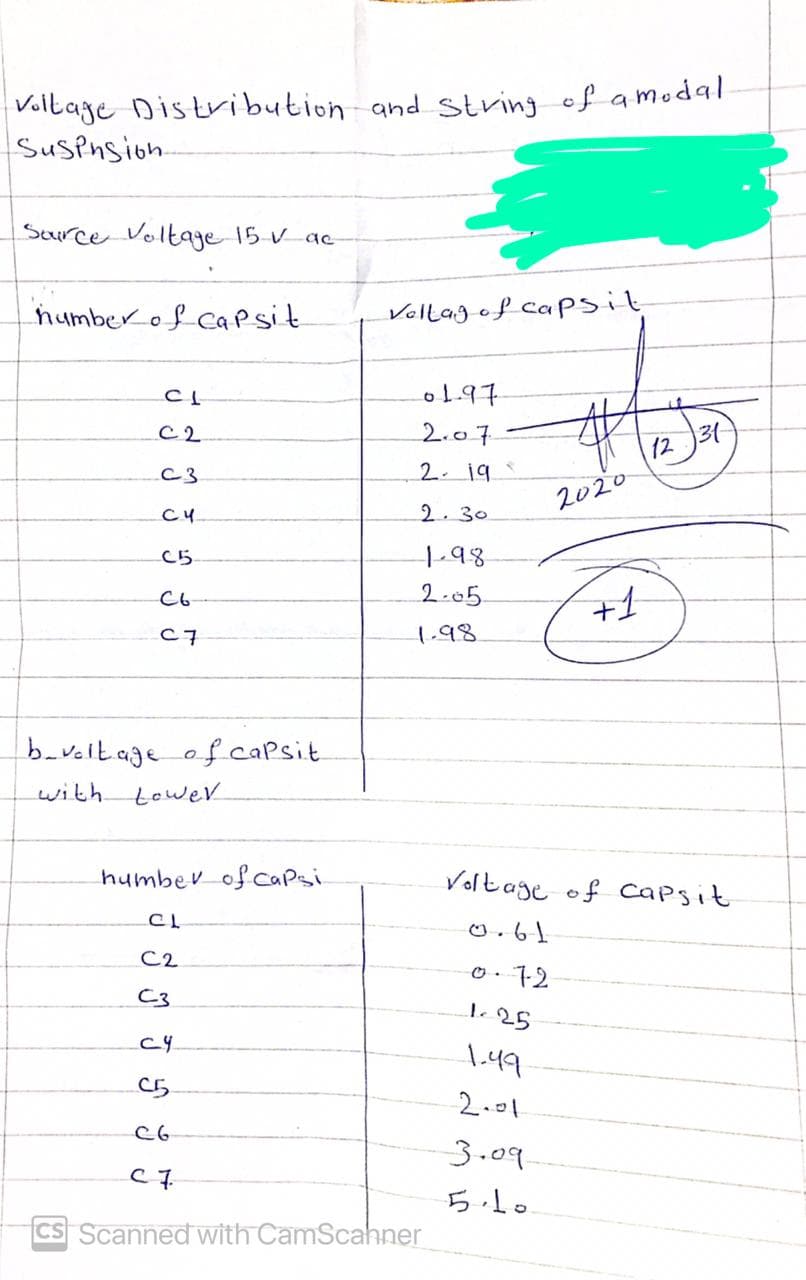 Voltage Distribution and String of a modal
SusPnsion
Source Voltage 15 V ac
number of capsit voltag of capsit
C1 01.97
C2 2.07
C3 2.19
C4 2.30
C5 1.98
C6 2.05
C7 1.98
12 31
2020
+1
b_voltage of capsit
with tower
number of capsi Voltage of capsit
C1 0.61
C2 0.72
C3 1.25
C4 1.49
C5 2.01
C6 3.09
C7 5.10
CS Scanned with CamScanner